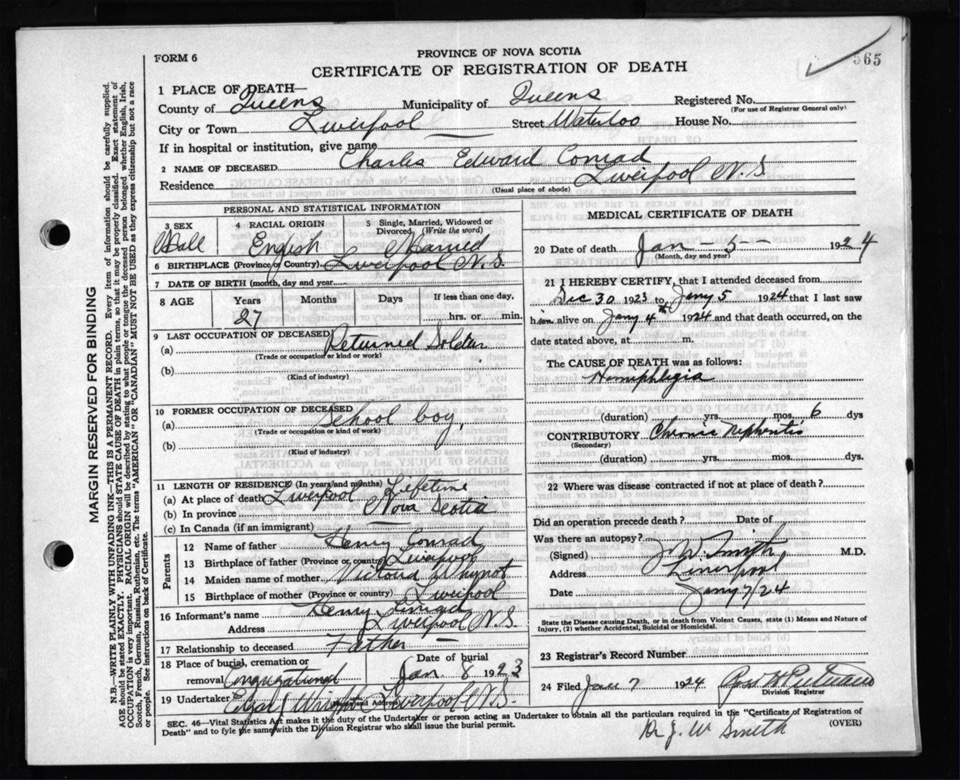 565
FORM 6
PROVINCE OF NOVA SCOTIA
CERTIFICATE OF REGISTRATION OF DEATH
1 PLACE OF DEATH—
County of Queens Municipality of Queens Registered No.
(For use of Registrar General only)
City or Town Liverpool Street Waterloo House No.
If in hospital or institution, give name
2 NAME OF DECEASED Charles Edward Conrad
Residence Liverpool N.S.
(Usual place of abode)
PERSONAL AND STATISTICAL INFORMATION
3 SEX Male 4 RACIAL ORIGIN English 5 Single, Married, Widowed or Divorced (Write the word) Married
6 BIRTHPLACE (Province or Country) Liverpool N.S.
7 DATE OF BIRTH (month, day and year)
8 AGE Years 27 Months Days If less than one day, hrs. or min.
9 LAST OCCUPATION OF DECEASED
(a) Returned Soldier
(Trade or occupation or kind of work)
(b)
(Kind of industry)
10 FORMER OCCUPATION OF DECEASED
(a) School boy,
(Trade or occupation or kind of work)
(b)
(Kind of industry)
11 LENGTH OF RESIDENCE (In years and months)
(a) At place of death Liverpool Lifetime
(b) In province Nova Scotia
(c) In Canada (if an immigrant)
Parents
12 Name of father Henry Conrad
13 Birthplace of father (Province or country) Liverpool
14 Maiden name of mother Victoria Whynot
15 Birthplace of mother (Province or country) Liverpool
16 Informant's name Henry Conrad
Address Liverpool N.S.
17 Relationship to deceased Father
18 Place of burial, cremation or removal Congregational Date of burial Jan 8 1923
19 Undertaker Liverpool N.S.
MEDICAL CERTIFICATE OF DEATH
20 Date of death Jan - 5 - 1924
(Month, day and year)
21 I HEREBY CERTIFY, that I attended deceased from
Dec 30 1923 to Jany 5 1924 that I last saw
him alive on Jany 4th 1924 and that death occurred, on the
date stated above, at m.
The CAUSE OF DEATH was as follows:
Hemiphlegia
(duration) yrs. mos. 6 dys
CONTRIBUTORY Chronic Nephritis
(Secondary)
(duration) yrs. mos. dys.
22 Where was disease contracted if not at place of death?
Did an operation precede death? Date of
Was there an autopsy?
(Signed) J. W. Smith M.D.
Address Liverpool
Date Jany 7/24
State the Disease causing Death, or in death from Violent Causes, state (1) Means and Nature of Injury, (2) whether Accidental, Suicidal or Homicidal.
23 Registrar's Record Number
24 Filed Jan 7 1924
Division Registrar
SEC. 46—Vital Statistics Act makes it the duty of the Undertaker or person acting as Undertaker to obtain all the particulars required in the "Certificate of Registration of
Death" and to fyle the same with the Division Registrar who shall issue the burial permit. (OVER)
Dr J. W Smith
MARGIN RESERVED FOR BINDING
N.B.—WRITE PLAINLY WITH UNFADING INK—THIS IS A PERMANENT RECORD. Every item of information should be carefully supplied.
AGE should be stated EXACTLY. PHYSICIANS should STATE CAUSE OF DEATH in plain terms, so that it may be properly classified. Exact statement of
OCCUPATION is very important. RACIAL ORIGIN will be described by stating to what people or tongue the deceased person belonged whether English, Irish,
Scotch, French, German, Russian, Ruthenian, etc. The terms "AMERICAN" OR "CANADIAN" MUST NOT BE USED as they express citizenship but not a race
or people. See instructions on back of Certificate.